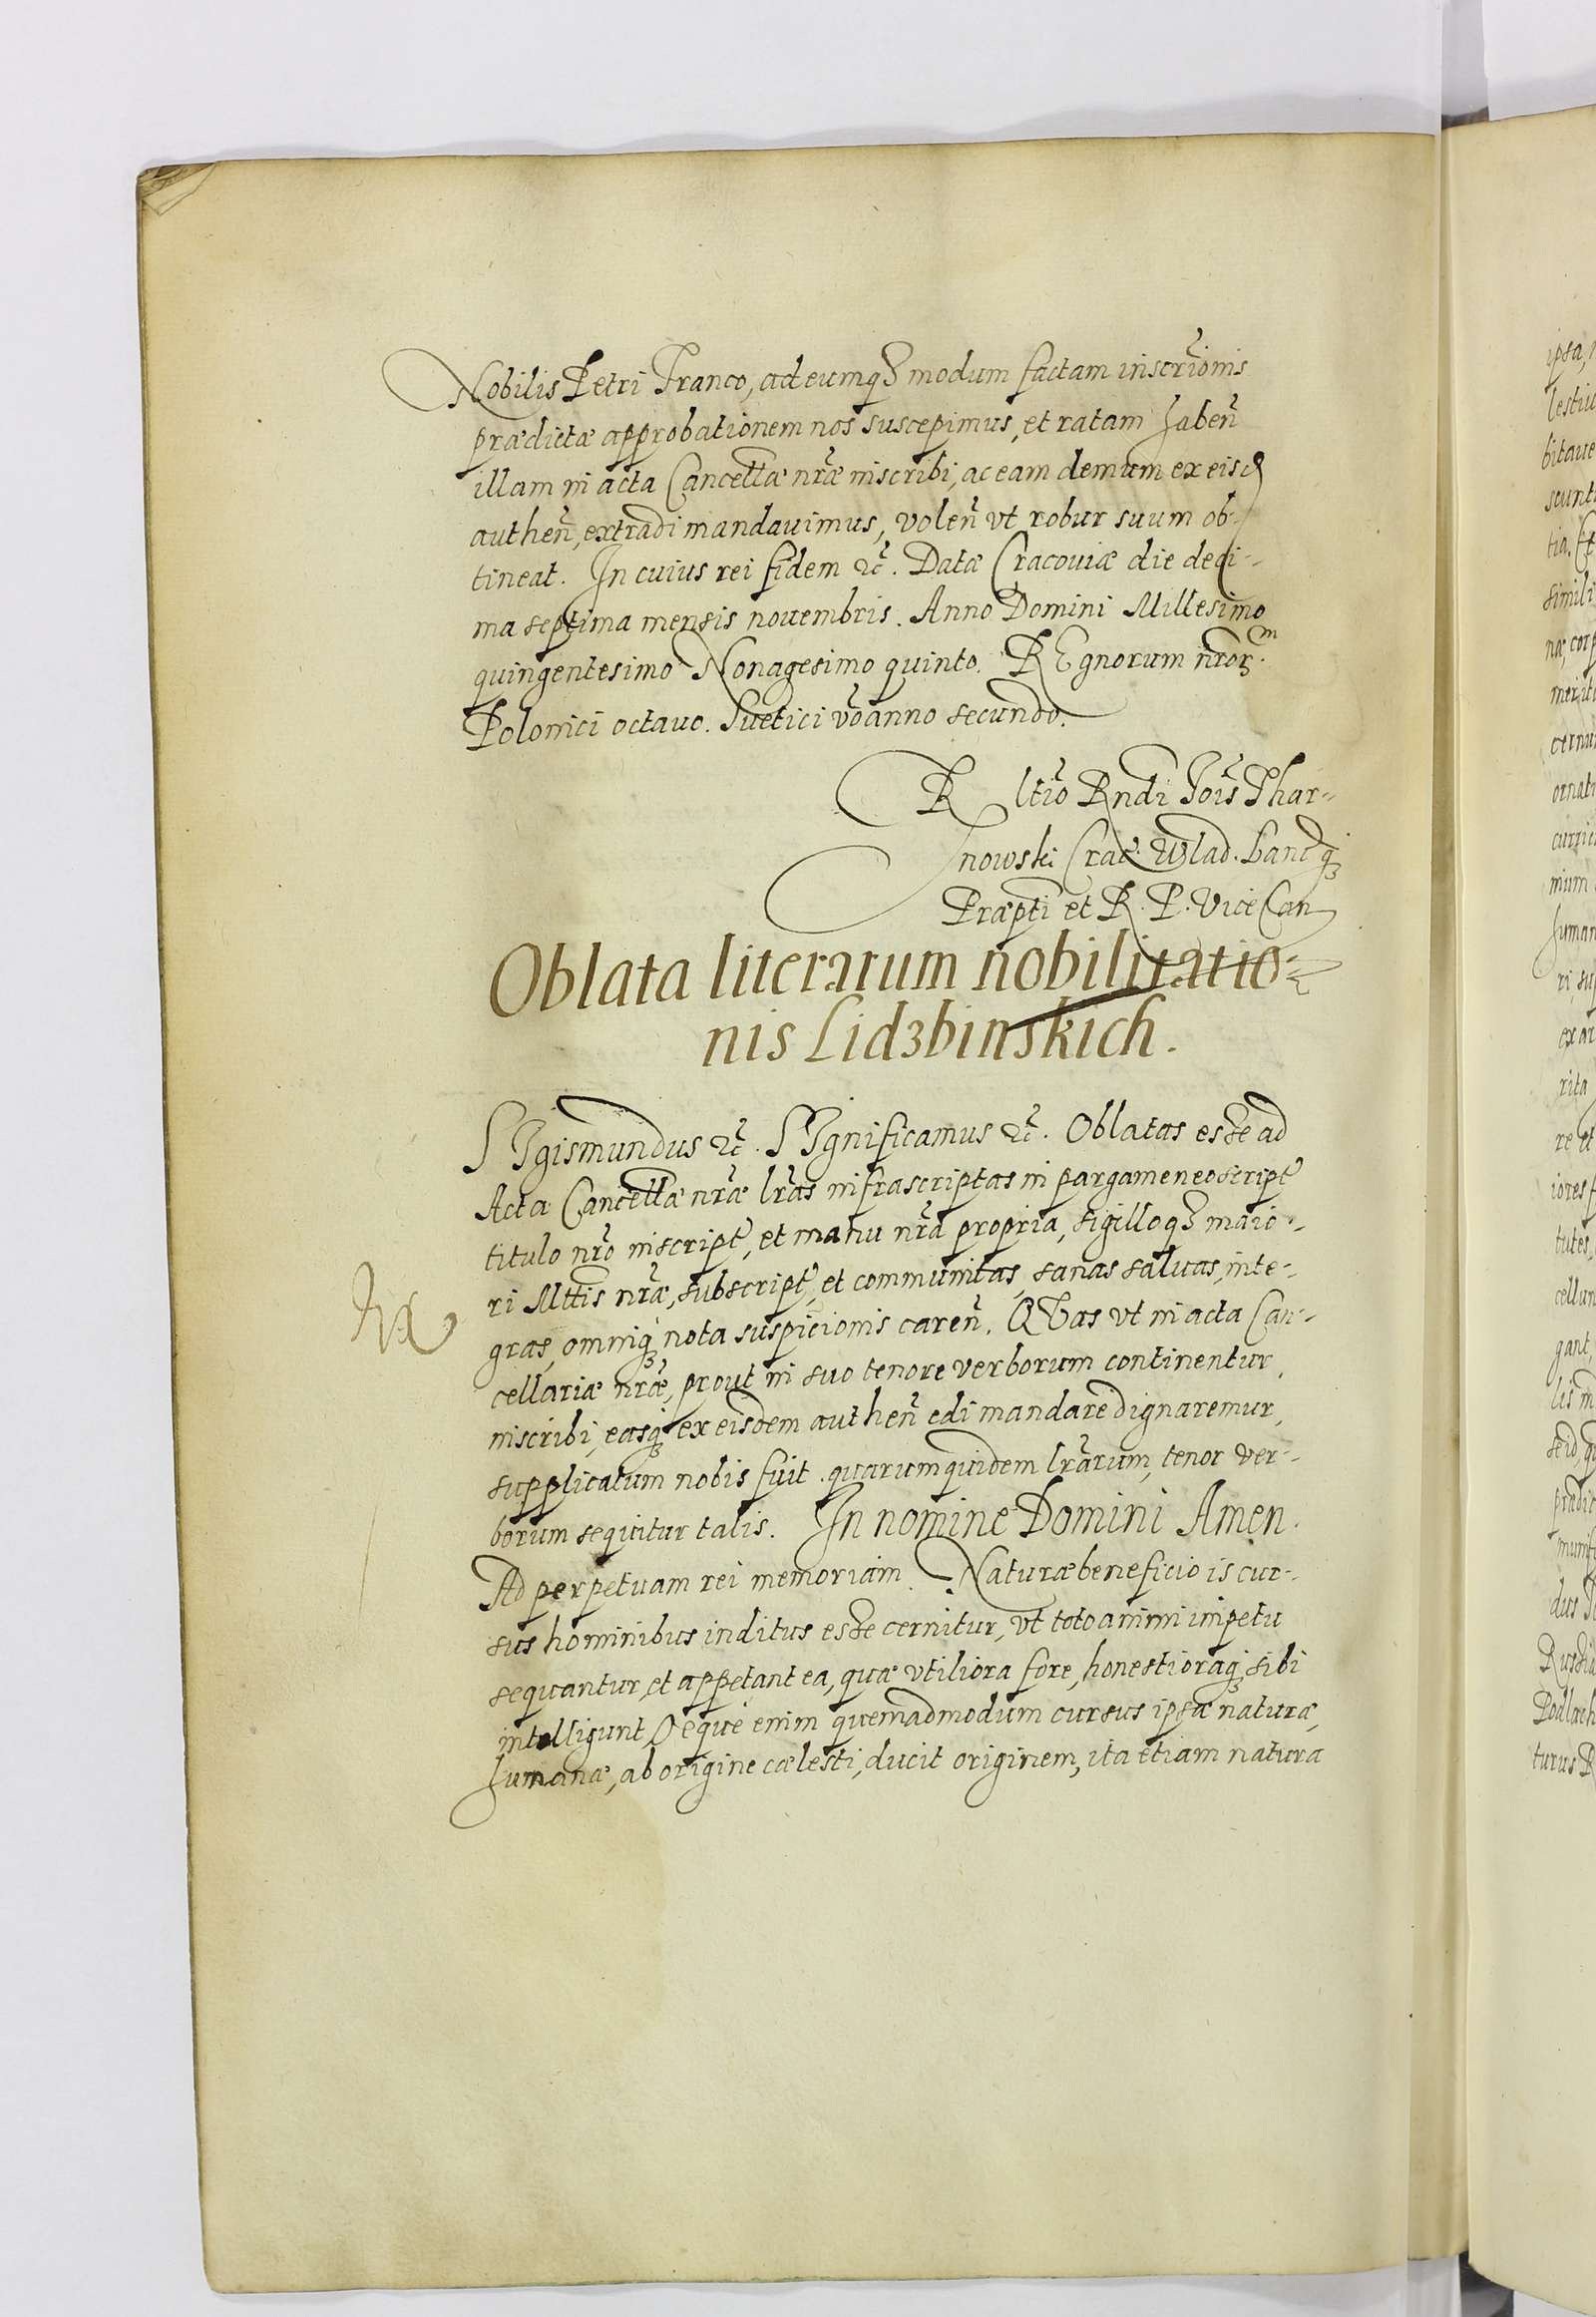 Nobilis Petri Franco, ad eumqȝ modum factam inscrõnis
prædictæ approbationem nos suscepimus, et ratam haben̄
illam in acta Cancellæ nr̃æ inscribi, ac eam demum ex eisd
authen̄, extradi mandauimus, volen̄ vt robur suum ob-
tineat. In cuius rei fidem ꝛc̃. Datæ Cracouiæ die deci-
ma septima mensis nouembris. Anno Domini Millesimo
quingentesimo Nonagesimo quinto. REgnorum nr̃orᵐ.
Polonici octauo. Suetici vō anno secundo.
R ltĩo Rndi Joĩs Thar-
nowski Crac̃. Wlad. Lancqȝ
Præpti et R. P. Vice Can
Oblata literarum nobilitatio-
nis Lidzbinskich.
SIgismundus ꝛc̃. SIgnificamus ꝛc̃. Oblatas esse ad
Acta Cancellæ nr̃æ lr̃as infrascriptas in pargameneo script̃
titulo nr̃o inscript̃, et manu nr̃a propria, sigilloqȝ maio-
ri Mttis nr̃æ, subscript̃, et communitas, sanas saluas, inte-
gras, omniqȝ nota suspicionis caren̄. QVas vt in acta Can-
cellariæ nr̃æ, prout in suo tenore verborum continentur,
inscribi, easqȝ ex eisdem authen̄ edi mandare dignaremur,
supplicatum nobis fuit. quarum quidem lr̃arum, tenor ver-
borum sequitur talis. In nomine Domini Amen.
Ad perpetuam rei memoriam. Naturæ beneficio is cur-
sus hominibus inditus esse cernitur, vt toto animi impetu
sequantur, et appetant ea, quæ vtiliora fore, honestioraqȝ sibi
intelligunt, Neque enim quemadmodum cursus ipsæ naturæ,
humanæ, ab origine cælesti, ducit originem, ita etiam natura